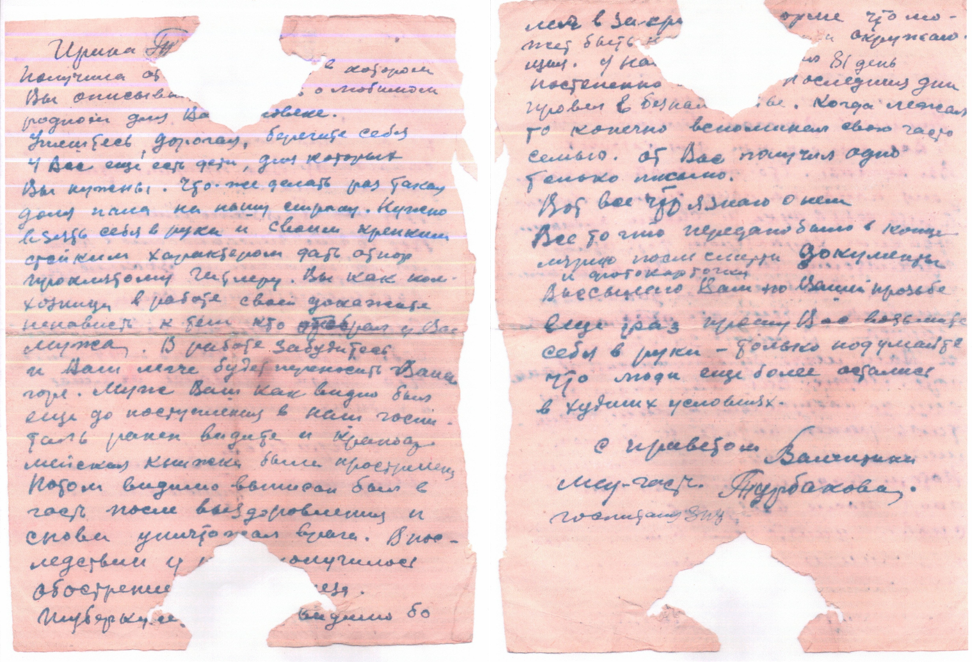 Ирина
Получила от в котором
Вы описыва о любимом
родном для Ва ловеке.
дорогая, берегите себя
У Вас ещё есть дети, для которых
Вы нужны. Что же делать раз такая
доля пала на нашу страну. Нужно
взять себя в руки и своим крепким
стойким характером дать отпор
проклятому Гитлеру. Вы как кол-
хозница в работе своей докажите
ненависть к тем кто отобрал у Вас
мужа. В работе забудитесь
и Вам легче будет переносить Ваше
горе. Муж Ваш как видно был
еще до поступления в наш госпи-
таль ранен видите и красноар
мейская книжка была прострелена
Потом видимо выписан был в
часть после выздоровления и
снова уничтожал врага. Впос-
ледствии у получилось
обострение
Туберкуле видимо бо
лел в закры орме что мо-
жет быть окружаю-
щих. У на 81 день
постепенно последних дни
провел в безнаде. Когда лежал
то конечно вспоминал свою часто
семью. От Вас получил одно
только письмо.
Вот все что я знаю о нем
Все то что передано было в конце
после смерти документы
и фотокарточки
Высылаю Вам по Вашей просьбе
еще раз прошу Вас возьмите
себя в руки – только подумайте
что люди еще более остались
в худших условиях.
с приветом Валентина
мед-сест. Турбакова.
госпиталь